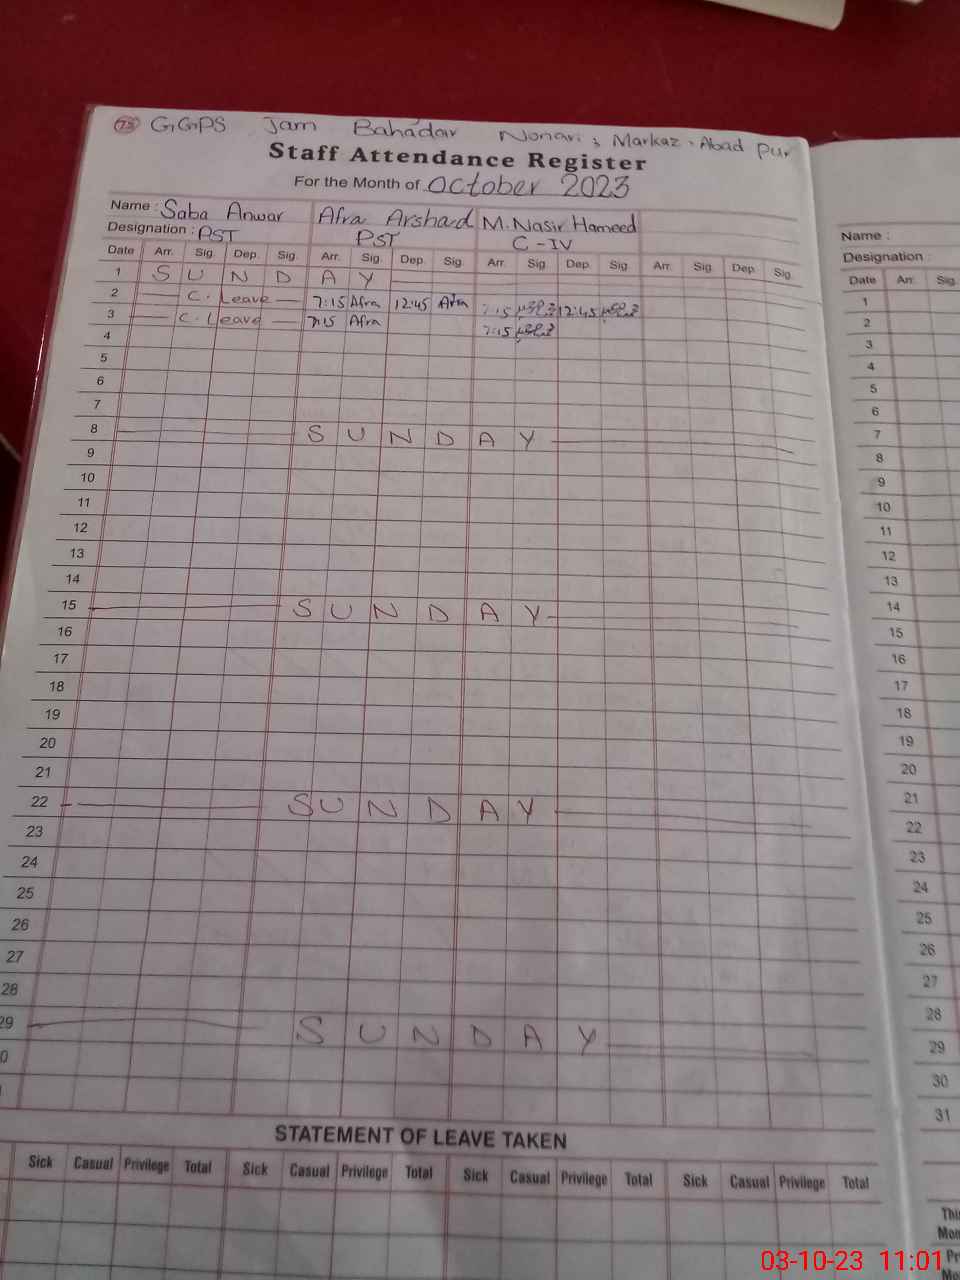 75 GGPS Jam Bahadar Nonari; Markaz. Abad Pur
Staff Attendance Register
For the Month of October 2023
Name: Saba Anwar Afra Arshad M. Nasir Hameed
Designation: PST PST C-IV
Date Arr. Sig. Dep. Sig. Arr. Sig. Dep. Sig. Arr. Sig. Dep. Sig. Arr. Sig. Dep. Sig.
1 S U N D A Y
2 C. Leave 7:15 Afra 12:45 Afra 7:15 12:45
3 C. Leave 7:15 Afra 7:15
4
5
6
7
8 S U N D A Y
9
10
11
12
13
14
15 S U N D A Y
16
17
18
19
20
21
22 S U N D A Y
23
24
25
26
27
28
29 S U N D A Y
0
STATEMENT OF LEAVE TAKEN
Sick Casual Privilege Total Sick Casual Privilege Total Sick Casual Privilege Total Sick Casual Privilege Total
Name :
Designation :
Date Arr. Sig.
1
2
3
4
5
6
7
8
9
10
11
12
13
14
15
16
17
18
19
20
21
22
23
24
25
26
27
28
29
30
31
Thi
Mon
Pr
Mo
03-10-23 11:01